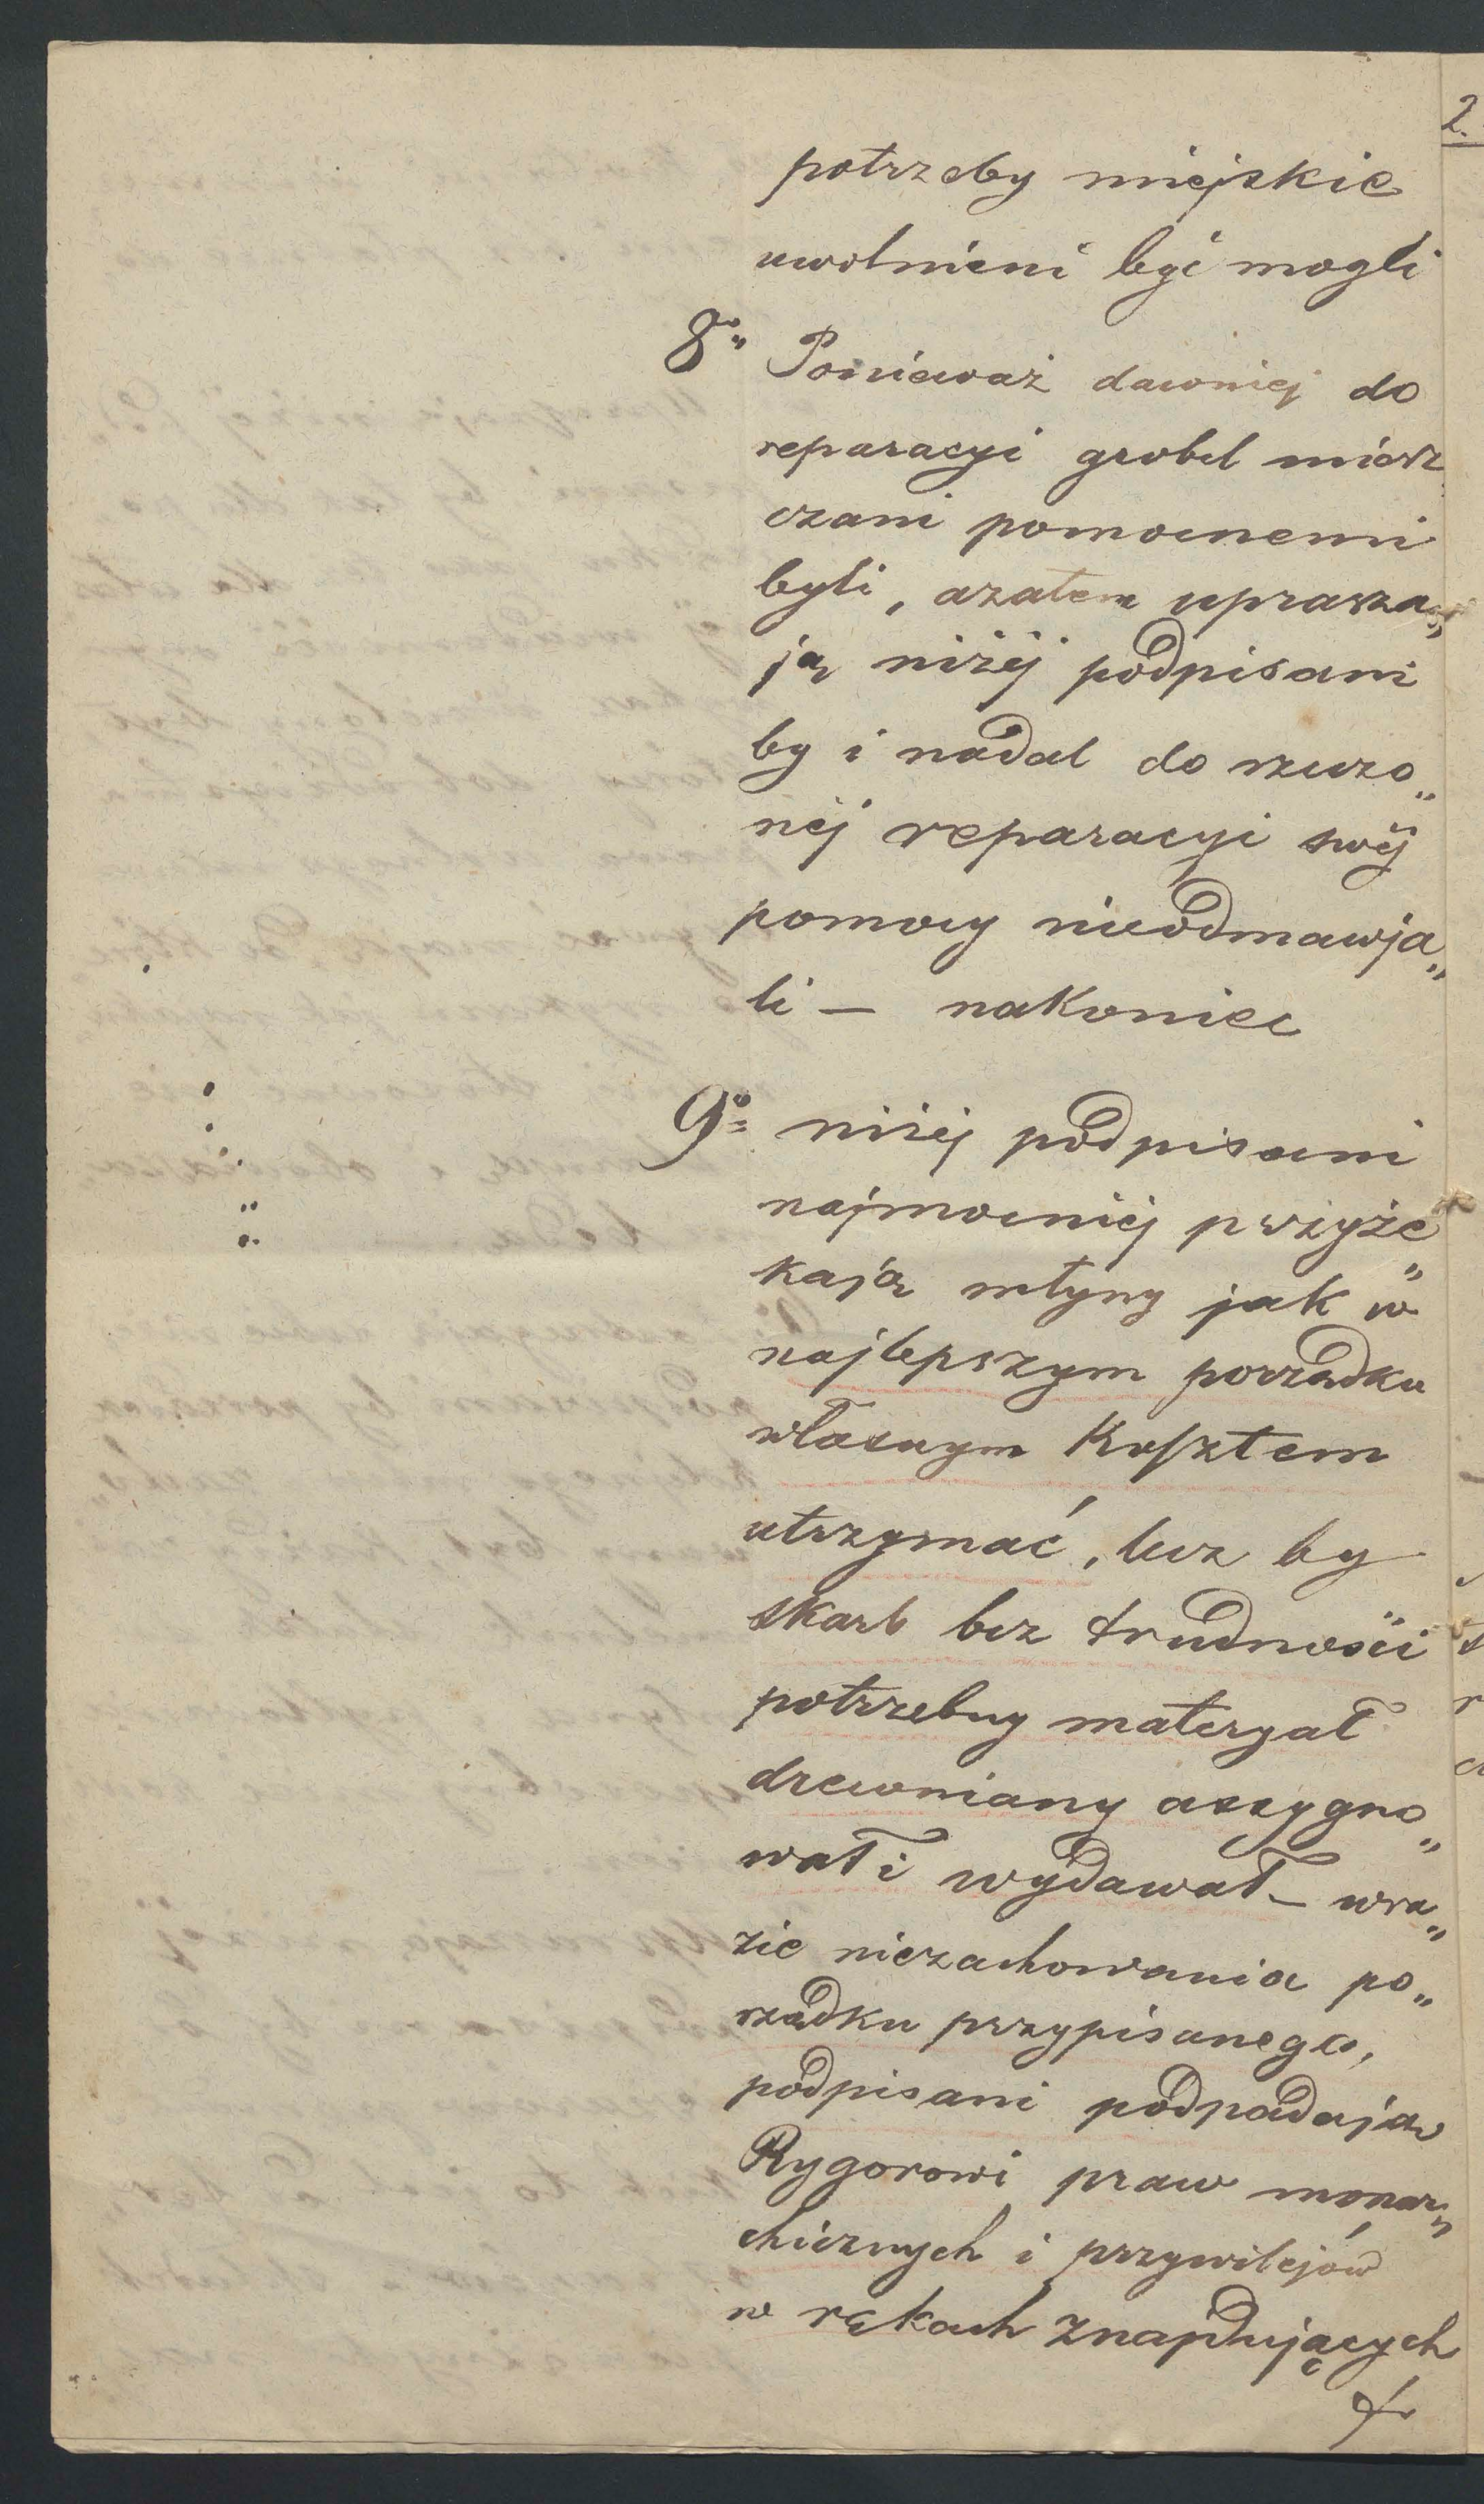 potrzeby miejskie
uwolnieni być mogli
8o„ Ponieważ dawniej do
reparacyi grobel miesz„
czani pomocnemi
byli, azatem uprasza„
ją niżéj podpisani
by i nadal do rzeczo„
néj reparacyi swéj
pomocy nieodmawja„
li — nakoniec
9o= niżéj podpisani
najmocniéj przyże„
kają młyny jak w
najlepszym porządku
własnym kosztem
utrzymać, lecz by
skarb bez trudności
potrzebny materyał
drewniany assygno„
wał i wydawał — wra„
zie niezachowania po„
rządku przypisanego,
podpisani podpadają
Rygorowi praw monar„
chicznych i przywilejów
w rękach znajdujących
2.